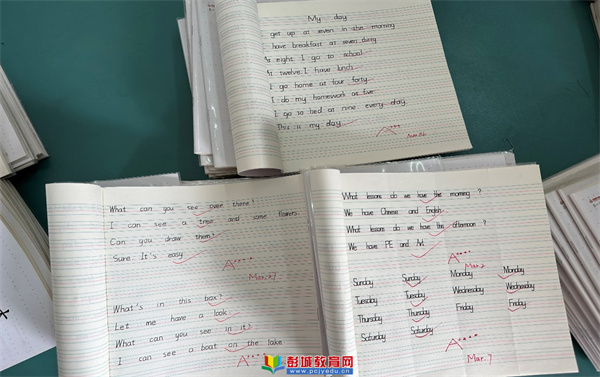 My day
get up at seven in the morning
have breakfast at seven thirty
At eight, I go to school
At twelve, I have lunch
I go home at four forty
I do my homework at five
I go to bed at nine every day
This is my day
A
What can you see over there?
I can see a tree and some flowers
Can you draw them?
Sure It's easy
A
Mar. 27
What's in this box?
Let me have a look
What can you see in it?
I can see a boat on the lake
A
What lessons do we have this morning ?
We have Chinese and English
What lessons do we have this afternoon ?
We have PE and Art
A
Mar.2
Sunday Sunday Monday Monday
Tuesday Tuesday Wednesday Wednesday
Thursday Thursday Friday Friday
Saturday Saturday
A
Mar. 7
彭城教育网
www.pcjyedu.cn